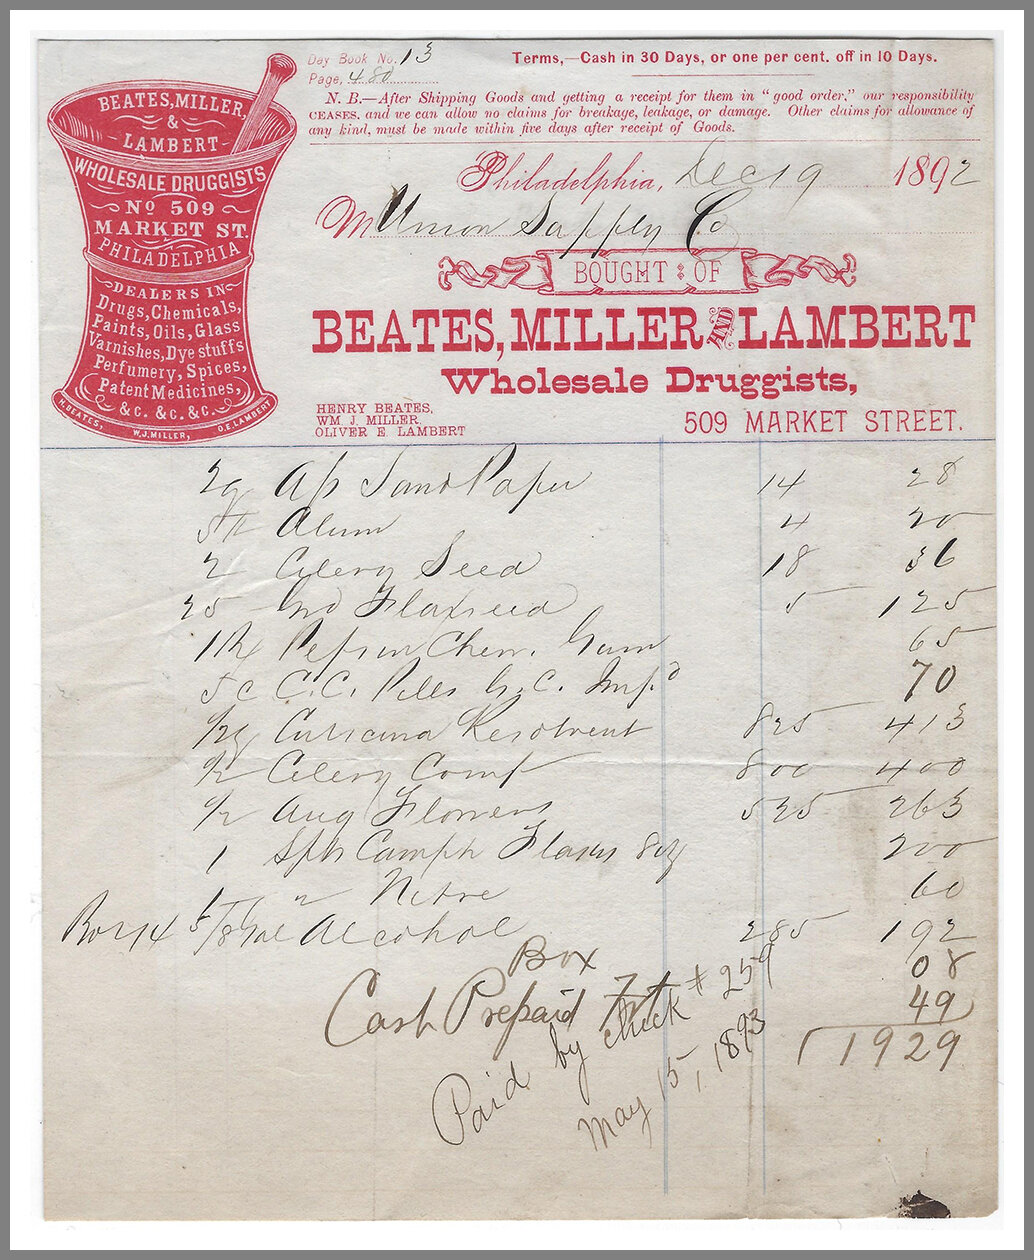 BEATES, MILLER,
&
LAMBERT
WHOLESALE DRUGGISTS
No 509
MARKET ST.
PHILADELPHIA
DEALERS IN
Drugs, Chemicals,
Paints, Oils, Glass
Varnishes, Dye stuffs
Perfumery, Spices,
Patent Medicines,
&C. &C. &C.
H. BEATES, W. J. MILLER, O. E. LAMBERT
Day Book No. 13
Page, 480
Terms,—Cash in 30 Days, or one per cent. off in 10 Days.
N. B.—After Shipping Goods and getting a receipt for them in "good order," our responsibility
CEASES, and we can allow no claims for breakage, leakage, or damage. Other claims for allowance of
any kind, must be made within five days after receipt of Goods.
Philadelphia, Dec 19 1892
M Union Supply Co
BOUGHT : OF
BEATES, MILLER AND LAMBERT
Wholesale Druggists,
HENRY BEATES,
WM J. MILLER
OLIVER E. LAMBERT
509 MARKET STREET.
2 Sand Paper 14 28
5 Alum 4 20
2 Celery Seed 18 36
25 Flaxseed 5 125
1 Pepsin Chew. Gum 65
5c C.C. Pills G.C. 70
1/2 Cuticura Resolvent 825 413
1/2 Celery Comp 800 400
1/2 Aug Flowers 525 263
1 Camph 200
1 " Nitre 60
Alcohol 285 192
Box 08
Cash Prepaid Frt 49
1929
Paid by check # 259
May 15, 1893